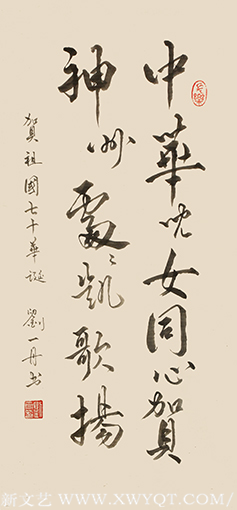 中華兒女同心賀
神州處〻凱歌揚
賀祖國七十華誕 劉一丹书
新文艺 WWW.XWYQT.COM/